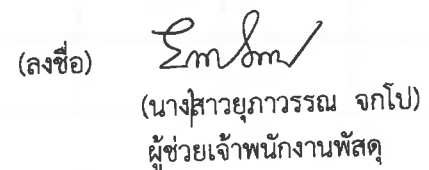 (ลงชื่อ)
(นางสาวยุภาวรรณ จกโป)
ผู้ช่วยเจ้าพนักงานพัสดุ